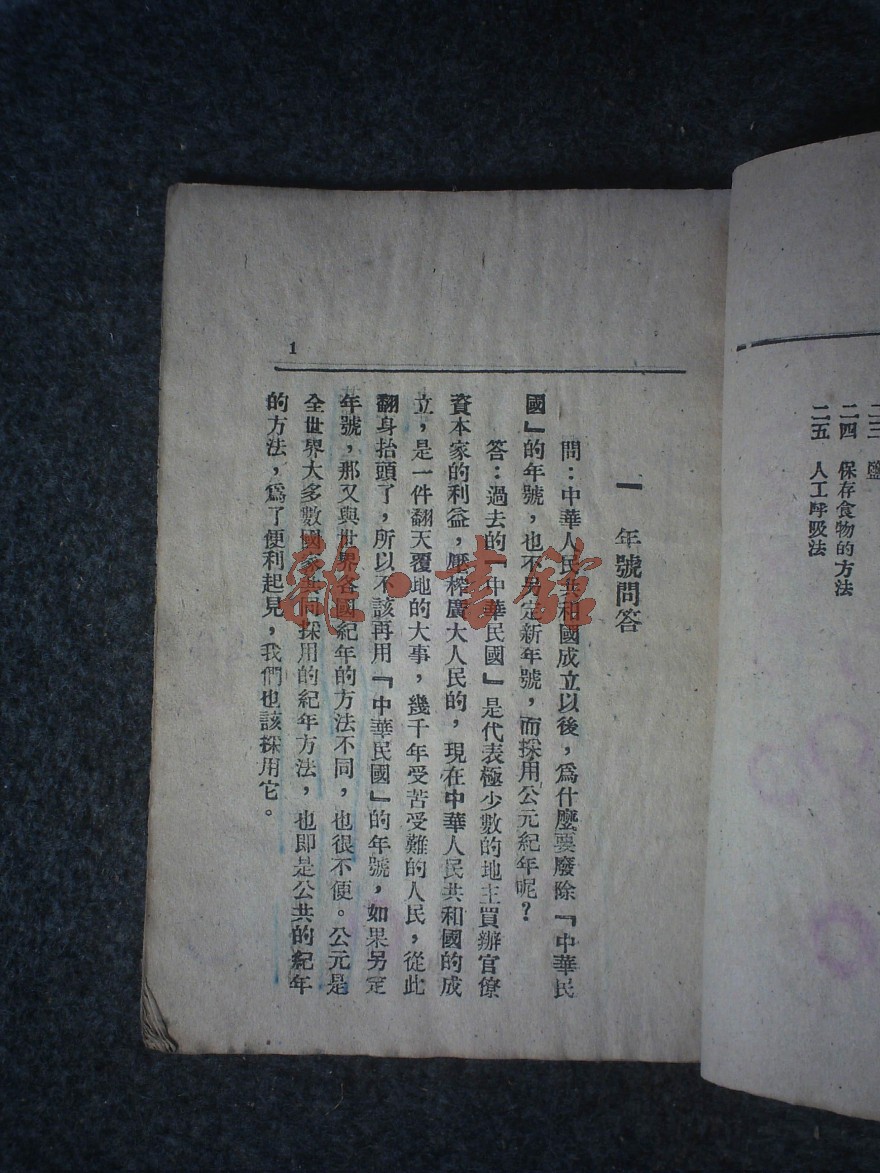 二三 鹽
二四 保存食物的方法
二五 人工呼吸法
1
一 年號問答
問：中華人民共和國成立以後，爲什麼要廢除「中華民
國」的年號，也不另定新年號，而採用公元紀年呢？
答：過去的「中華民國」是代表極少數的地主買辦官僚
資本家的利益，壓榨廣大人民的，現在中華人民共和國的成
立，是一件翻天覆地的大事，幾千年受苦受難的人民，從此
翻身抬頭了，所以不該再用「中華民國」的年號，如果另定
年號，那又與世界各國紀年的方法不同，也很不便。公元是
全世界大多數國家共同採用的紀年方法，也即是公共的紀年
的方法，爲了便利起見，我們也該採用它。
雜·書館